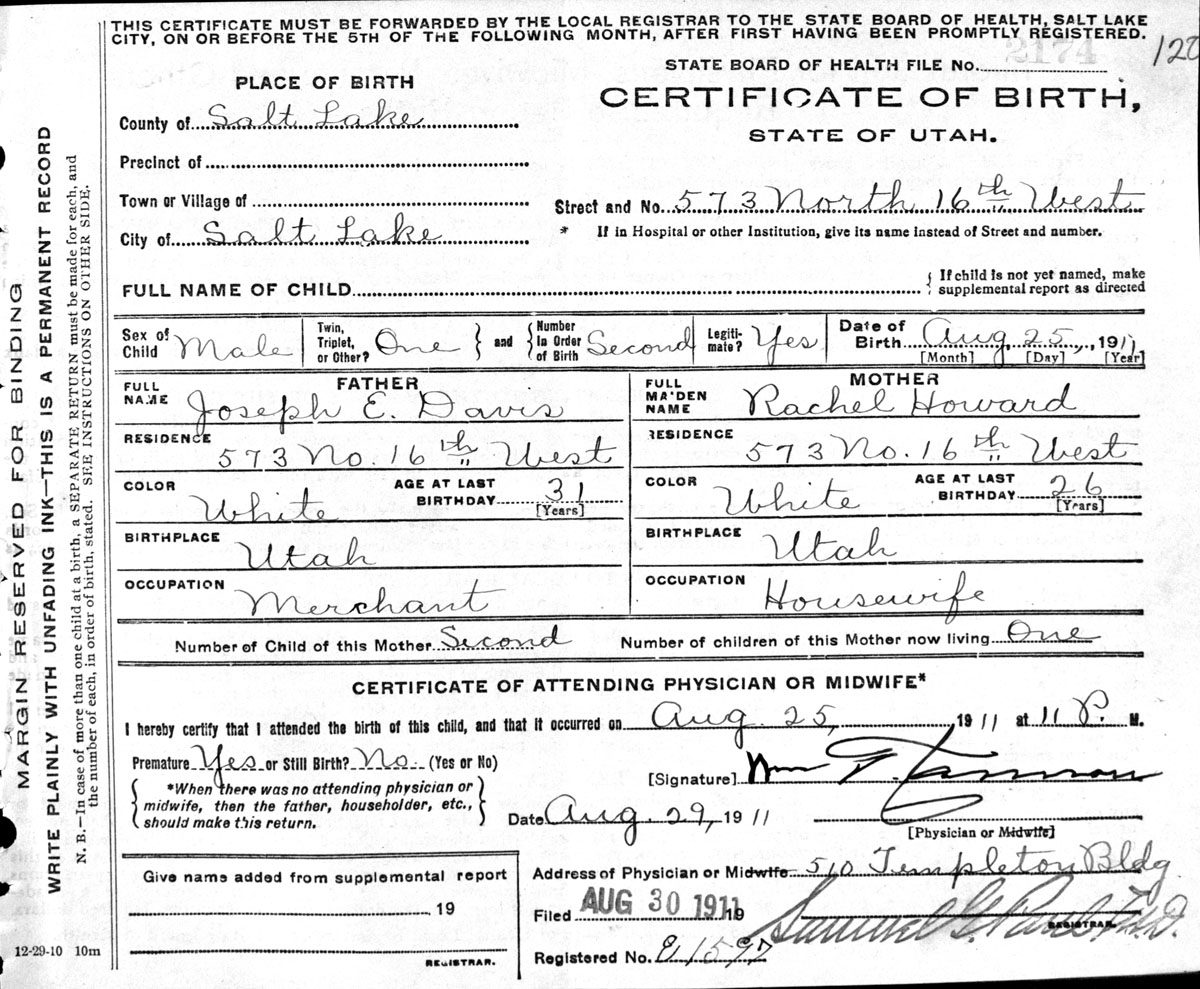 THIS CERTIFICATE MUST BE FORWARDED BY THE LOCAL REGISTRAR TO THE STATE BOARD OF HEALTH, SALT LAKE
CITY, ON OR BEFORE THE 5TH OF THE FOLLOWING MONTH, AFTER FIRST HAVING BEEN PROMPTLY REGISTERED.
2174
STATE BOARD OF HEALTH FILE No.
CERTIFICATE OF BIRTH,
STATE OF UTAH.
PLACE OF BIRTH
County of Salt Lake
Precinct of
Town or Village of
City of Salt Lake
Street and No. 573 North 16th West
* If in Hospital or other Institution, give its name instead of Street and number.
FULL NAME OF CHILD
{ If child is not yet named, make
supplemental report as directed
Sex of Child Male
Twin, Triplet, or Other? One } and { Number In Order of Birth Second
Legiti-mate? Yes
Date of Birth Aug. 25, 1911
[Month] [Day] [Year]
FATHER
FULL NAME Joseph E. Davis
RESIDENCE
573 No. 16th West
COLOR White AGE AT LAST BIRTHDAY 31 [Years]
BIRTHPLACE Utah
OCCUPATION Merchant
MOTHER
FULL MAIDEN NAME Rachel Howard
RESIDENCE
573 No. 16th West
COLOR White AGE AT LAST BIRTHDAY 26 [Years]
BIRTHPLACE Utah
OCCUPATION Housewife
Number of Child of this Mother Second Number of children of this Mother now living One
CERTIFICATE OF ATTENDING PHYSICIAN OR MIDWIFE*
I hereby certify that I attended the birth of this child, and that it occurred on Aug. 25, 1911 at 11 P. M.
Premature Yes or Still Birth? No. (Yes or No)
{ *When there was no attending physician or
midwife, then the father, householder, etc.,
should make this return. }
[Signature] Wm
Date Aug. 29, 1911
[Physician or Midwife]
Address of Physician or Midwife 510 Templeton Bldg
Filed AUG 30 1911 19
Samuel G. Paul M.D.
REGISTRAR.
Registered No.
Give name added from supplemental report
19
REGISTRAR.
12-29-10 10m
MARGIN RESERVED FOR BINDING
WRITE PLAINLY WITH UNFADING INK—THIS IS A PERMANENT RECORD
N. B.—In case of more than one child at a birth, a SEPARATE RETURN must be made for each, and
the number of each, in order of birth, stated. SEE INSTRUCTIONS ON OTHER SIDE.